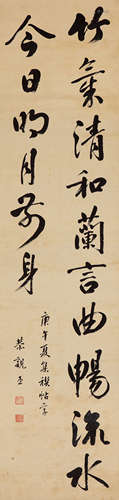 竹氣清和蘭言曲暢流水
今日明月前身
庚午夏集禊帖字
恭親王